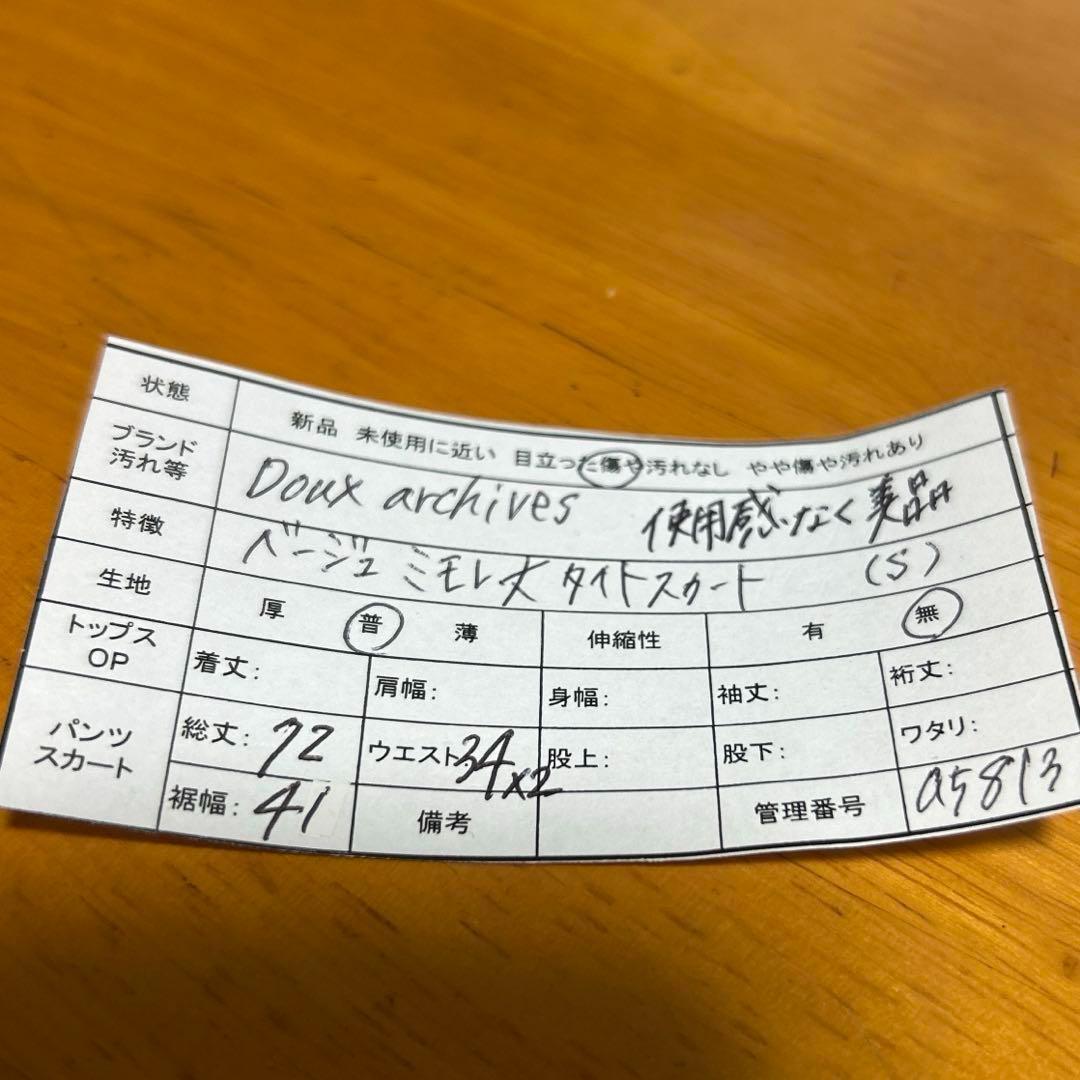 状態 新品 未使用に近い 目立った傷や汚れなし やや傷や汚れあり
ブランド 汚れ等 Doux archives 使用感なく美品
特徴 ベージュ ミモレ丈 タイトスカート (S)
生地 厚 普 薄 伸縮性 有 無
トップス OP 着丈: 肩幅: 身幅: 袖丈: 裄丈:
パンツ スカート 総丈: 72 ウエスト: 34×2 股上: 股下: ワタリ:
裾幅: 41 備考 管理番号 a5813